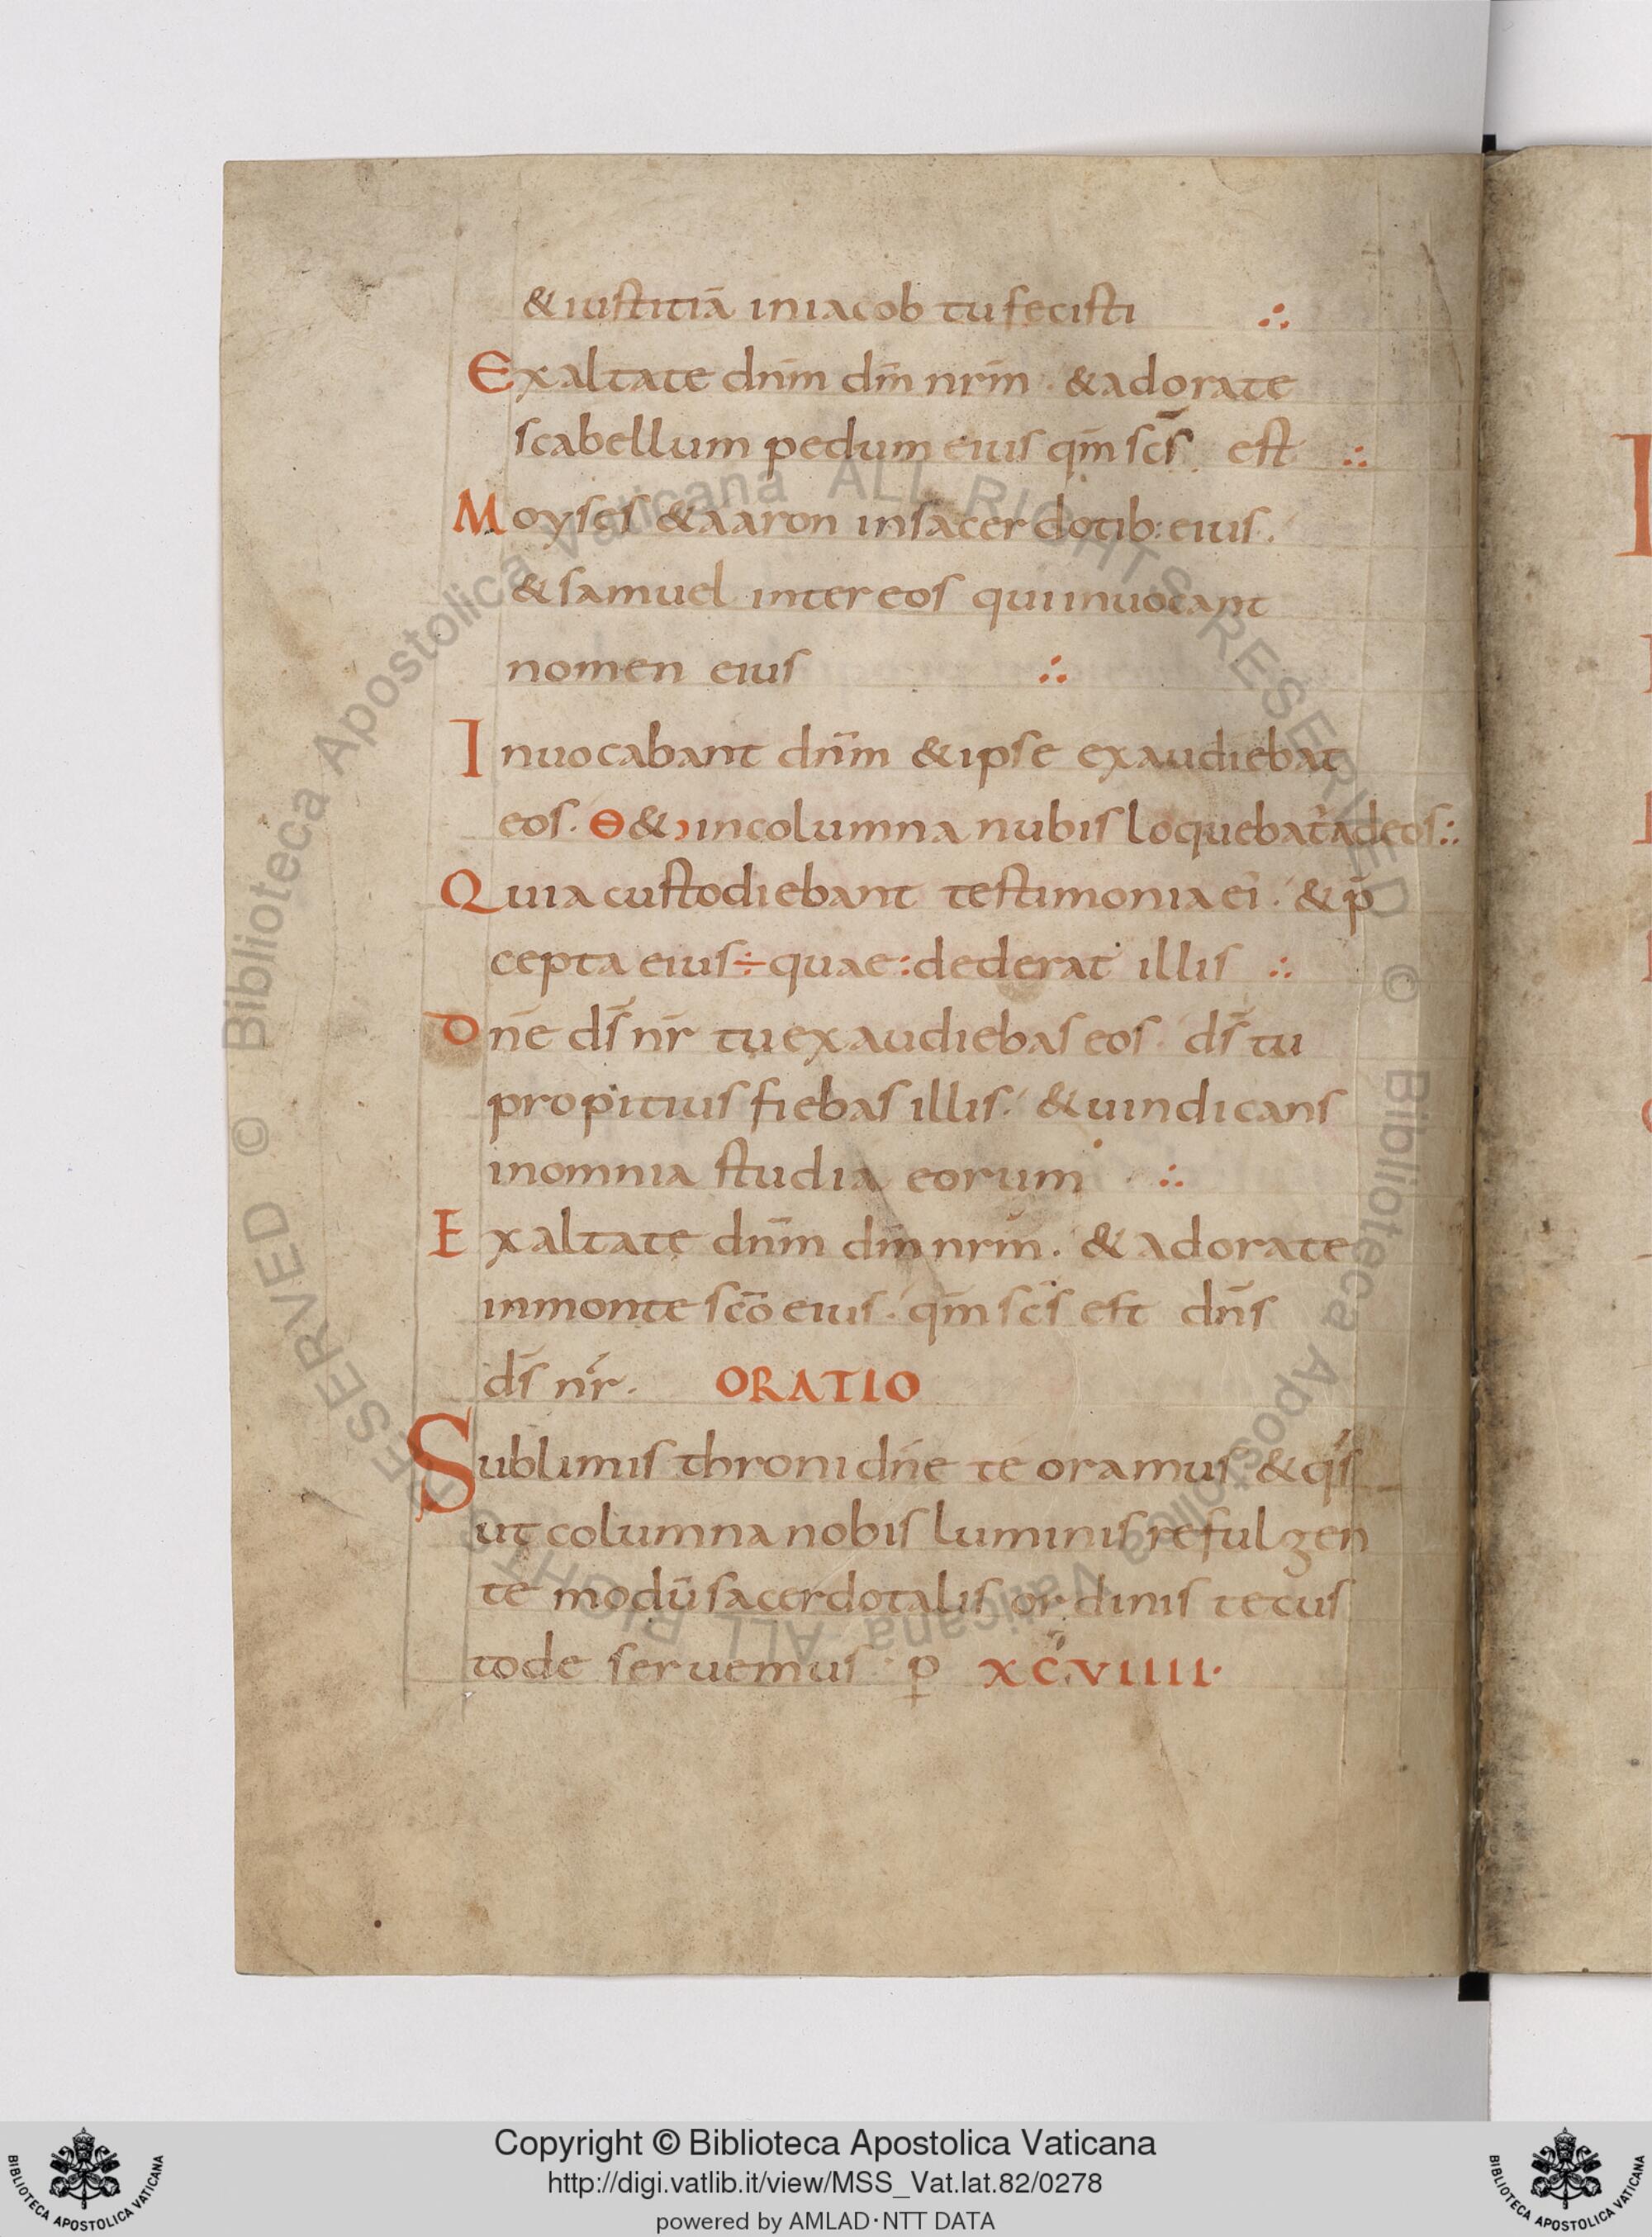 & iustitiā in iacob tu fecisti ∴
Exaltate dn̄m dm̄ nrm̄ · & adorate
scabellum pedum eius qm̄ scs̄ est ∴
Moyses & aaron in sacerdotib: eius ·
& samuel inter eos qui inuocant
nomen eius ∴
Inuocabant dn̄m & ipse exaudiebat
eos · ⲑ & : in columna nubis loquebat ad eos ∴
Quia custodiebant testimonia ei' · & p̄
cepta eius ÷ quae : dederat illis ∴
Dn̄e ds̄ nr̄ tu exaudiebas eos · ds̄ tu
propitius fiebas illis · & uindicans
in omnia studia eorum ∴
Exaltate dn̄m dm̄ nrm̄ · & adorate
in monte scō eius · qm̄ scs̄ est dn̄s
ds̄ nr̄ · ORATIO
Sublimis throni dn̄e te oramus & qs̄
ut columna nobis luminis refulgen
te modū sacerdotalis ordinis te cus
tode seruemus · p XCVIIII·
Copyright © Biblioteca Apostolica Vaticana
http://digi.vatlib.it/view/MSS_Vat.lat.82/0278
powered by AMLAD·NTT DATA
BIBLIOTECA APOSTOLICA VATICANA
BIBLIOTECA APOSTOLICA VATICANA
© Biblioteca Apostolica Vaticana ALL RIGHTS RESERVED © Biblioteca Apostolica Vaticana ALL RIGHTS RESERVED